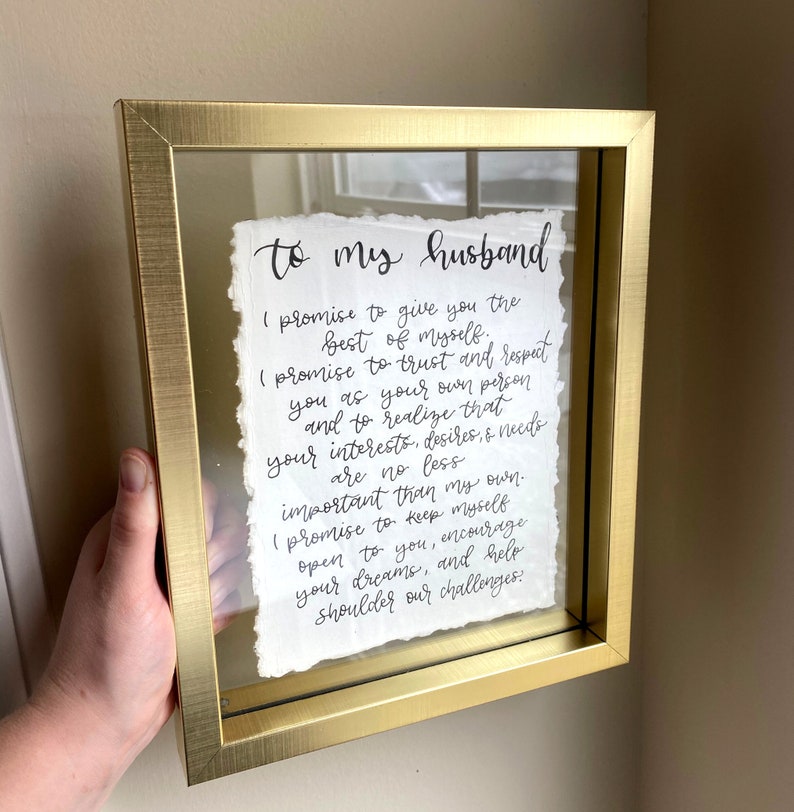 to my husband
I promise to give you the
best of myself.
I promise to trust and respect
you as your own person
and to realize that
your interests, desires, & needs
are no less
important than my own.
I promise to keep myself
open to you, encourage
your dreams, and help
shoulder our challenges.